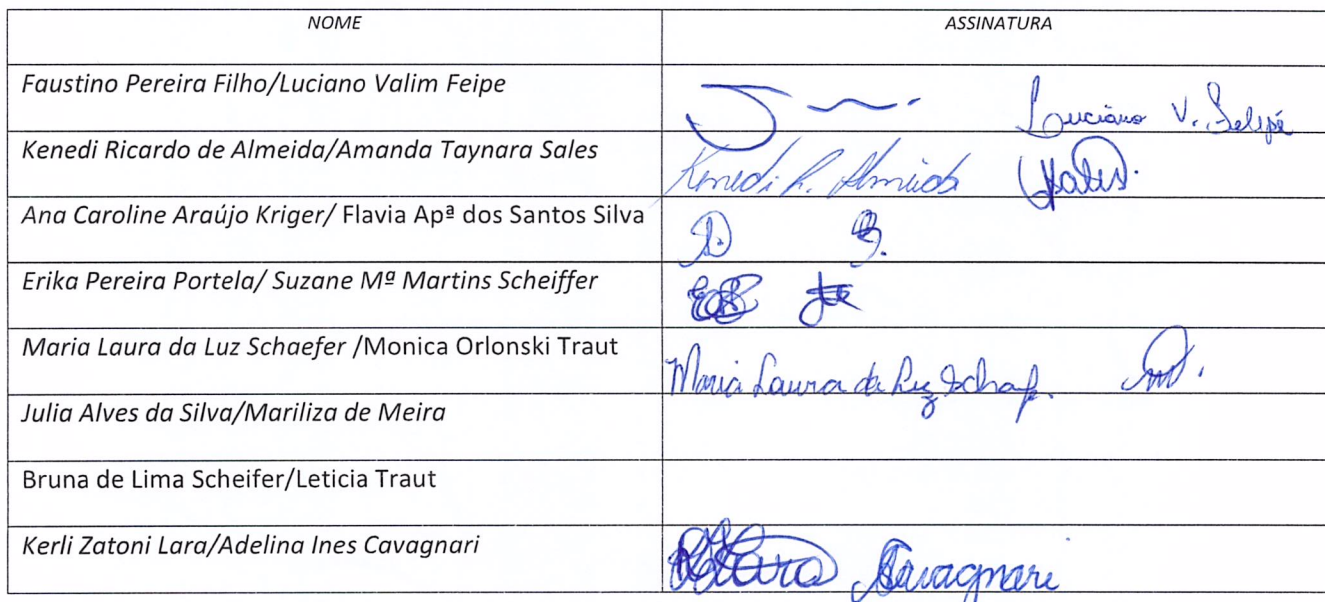 NOME ASSINATURA
Faustino Pereira Filho/Luciano Valim Feipe Luciano V. Felipe
Kenedi Ricardo de Almeida/Amanda Taynara Sales Kenedi R. Almeida Sales.
Ana Caroline Araújo Kriger/ Flavia Apª dos Santos Silva
Erika Pereira Portela/ Suzane Mª Martins Scheiffer
Maria Laura da Luz Schaefer /Monica Orlonski Traut Maria Laura da Luz Schaf.
Julia Alves da Silva/Mariliza de Meira
Bruna de Lima Scheifer/Leticia Traut
Kerli Zatoni Lara/Adelina Ines Cavagnari Cavagnari